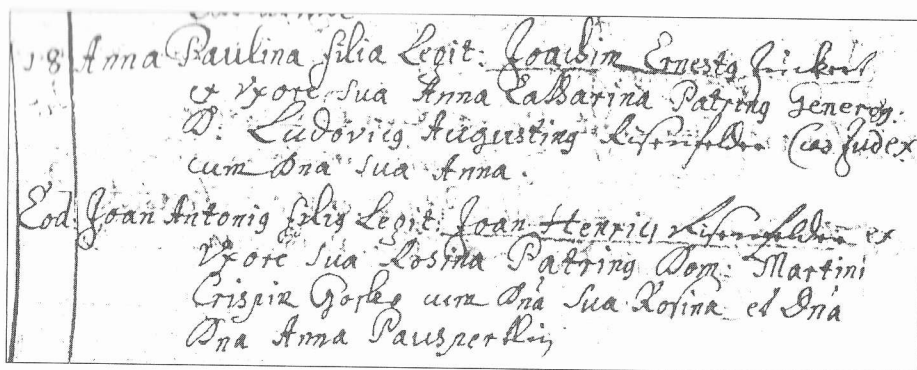 18 Anna Paulina filia Legit: Joachim Ernestg Zuckert
et Vxore sua Anna Catharina Patring Generog.
D. Ludovicg Augusting Eisenfelder Judex
cum Dna sua Anna.
Eod. Joan Antonig filig Legit. Joan Henrici Eisenfelder et
Vxore sua Rosina Patring Dom: Martini
Crispin cum Dna sua Rosina et Dna
Dna Anna